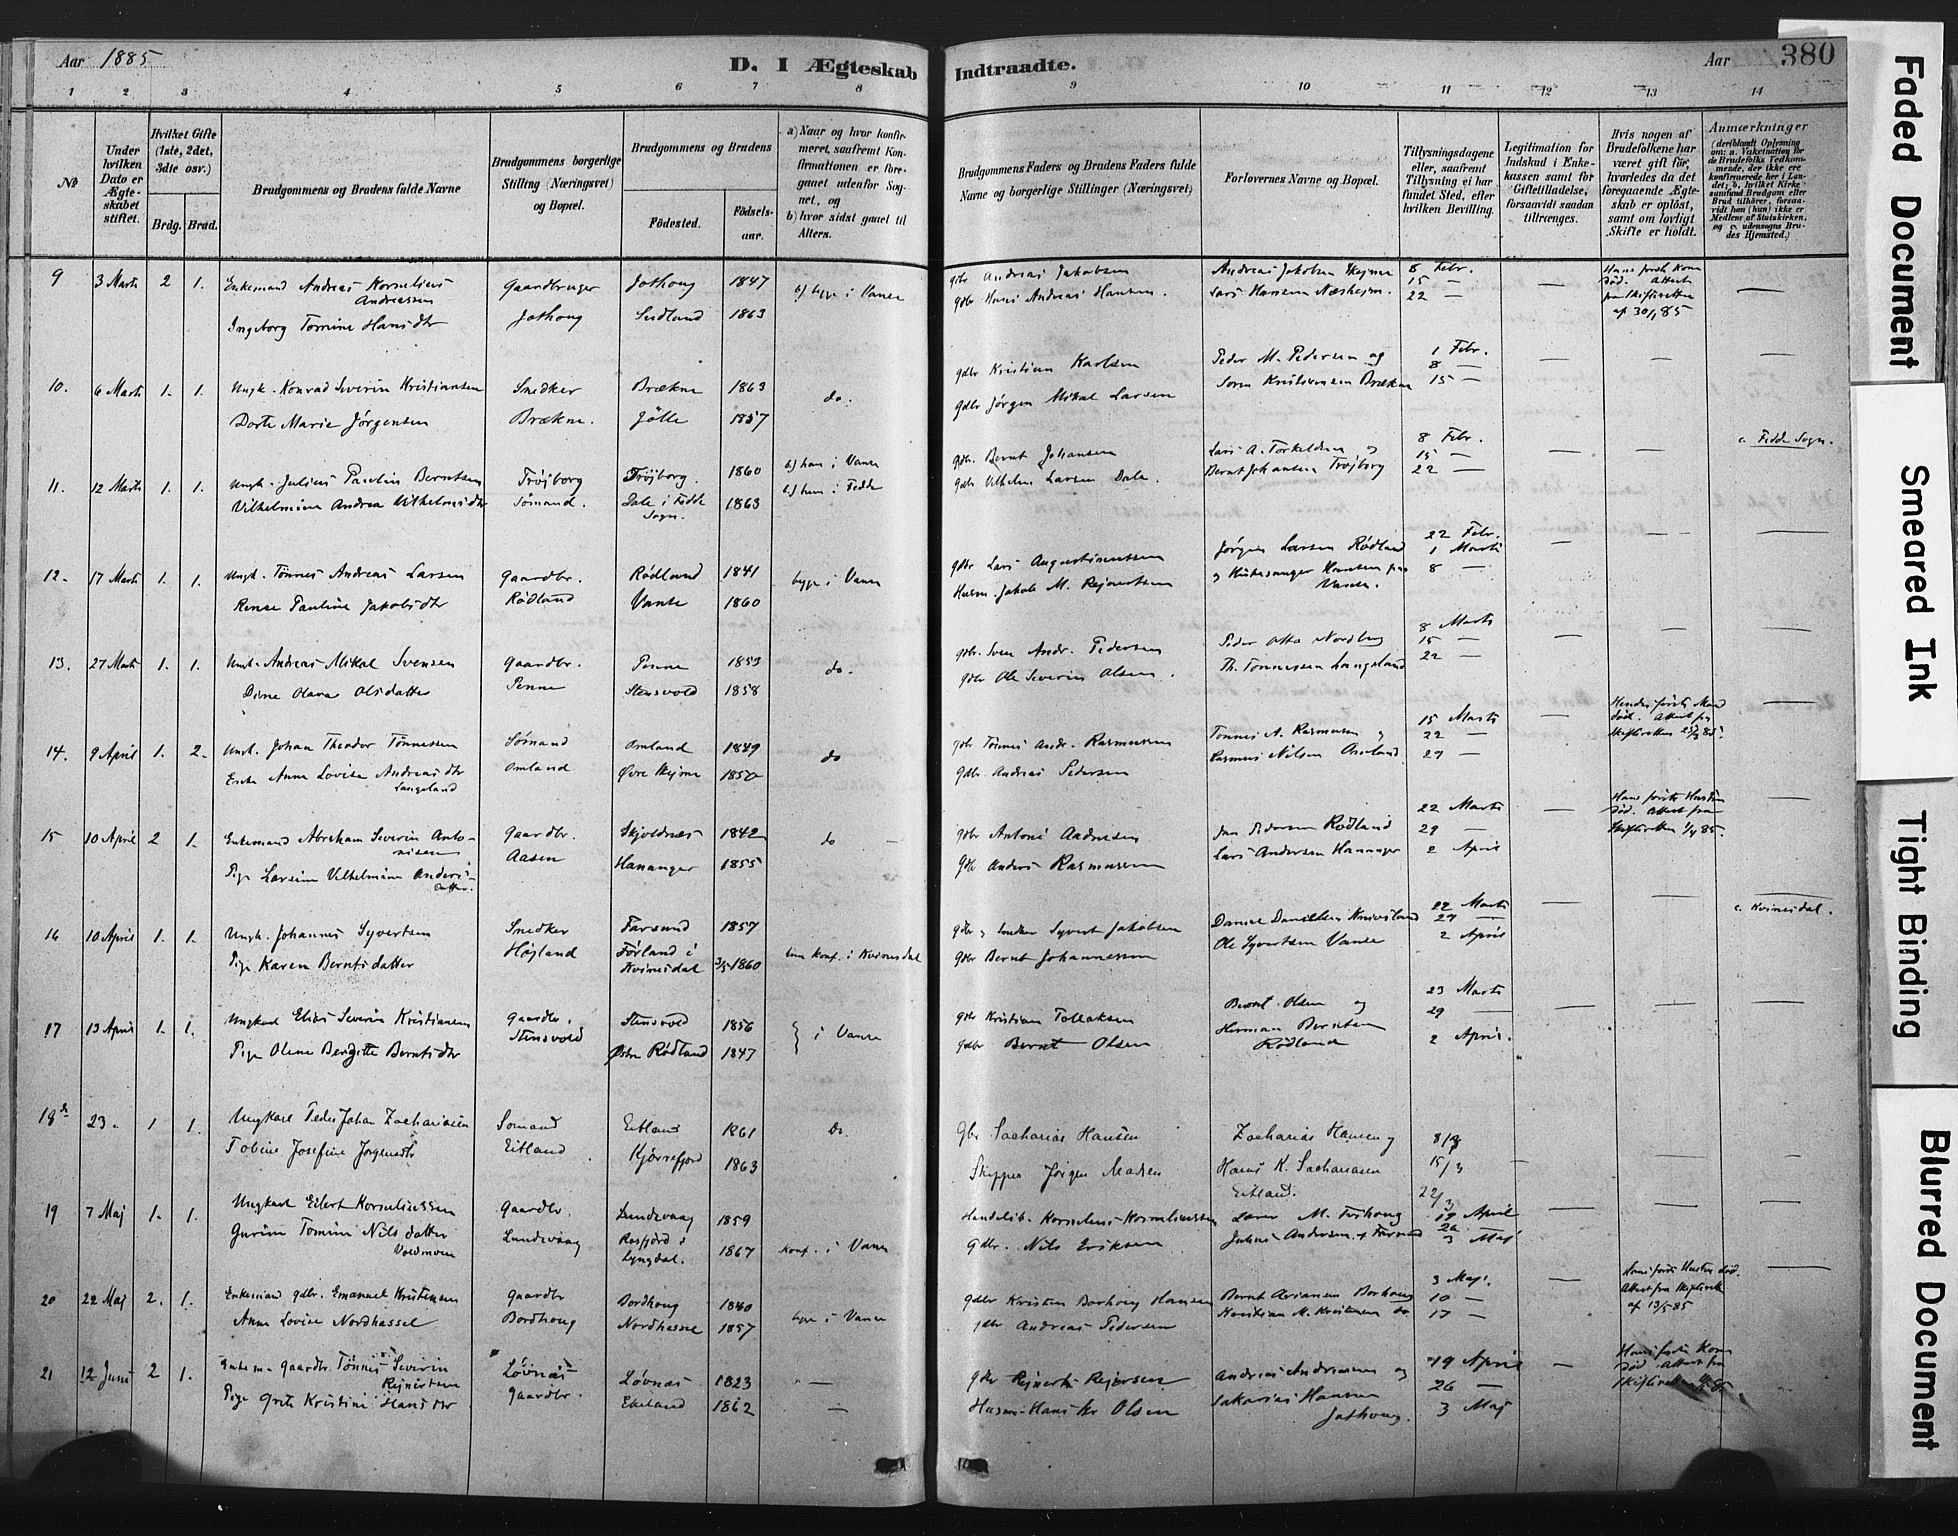 Aar 1885
D. I Ægteskab
Indtraadte.
Aar
380
1 2 3 4 5 6 7 8 9 10 11 12 13 14
No
Under hvilken Dato er Ægteskabet stiftet.
Hvilket Gifte (1ste, 2det, 3die osv.)
Brdg. Brud.
Brudgommens og Brudens fulde Navne
Brudgommens borgerlige Stilling (Næringsvei) og Bopæl.
Brudgommens og Brudens
Fødested.
Fødselsaar.
a) Naar og hvor konfirmeret, saafremt Konfirmationen er foregaaet udenfor Sognet, og
b) hvor sidst gaaet til Alters.
Brudgommens Faders og Brudens Faders fulde Navne og borgerlige Stillinger (Næringsvei)
Forlovernes Navne og Bopæl.
Tillysningsdagene eller, saafremt Tillysning ei har fundet Sted, efter hvilken Bevilling.
Legitimation for Indskud i Enkekassen samt for Giftetilladelse, forsaavidt saadan tiltrænges.
Hvis nogen af Brudefolkene har været gift før, hvorledes da det foregaaende Ægteskab er opløst, samt om lovligt Skifte er holdt.
Anmærkninger
(deriblandt Oplysning om: a. Vakcination for de Brudefolks Vedkommende, der ikke ere konfirmerede her i Landet; b. hvilket Kirkesamfund Brudgom eller Brud tilhører, forsaavidt han (hun) ikke er Medlem af Statskirken, og c. udensogns Brudes Hjemsted.)
9 3 Marts 2 1. Enkemand Andreas Kornelius Andreassen Gaardbruger Jothoug 1847 b) begge i Vanse gdbr Andreas Jakobsen Andreas Jakobsen 8 Febr. Hans første Kone
Ingeborg Tomine Hansdtr Jothoug 1863 gdbr Hans Andreas Hansen. Lars Hansen 15 — 22 — død. Attest fra Skifteretten af 30/1 85
10. 6 Marts 1. 1. Ungk. Konrad Severin Kristiansen Snedker Brækne 1863 do. gdbr Kristian Karlsen Peder M. Pedersen og 1 Febr. 8 —
Dorte Marie Jörgensen Brækne. Jölle 1857 gdbr Jörgen Mikal Larsen Sören Kristiansen Brækne 15 —
11. 12 Marts 1. 1. Ungk. Julius Paulin Berntsen Tröjborg Tröjborg. 1860 b) ham i Vanse gdbr. Bernt Johansen Lars A. Torkeldsen og 8 Febr. 15 — c. Fedde Sogn.
Vilhelmine Andrea Vilhelmsdtr Sömand. Dale i Fedde Sogn. 1863 gdbr. Vilhelm Larsen Dale. Bernt Johansen Tröjborg 22 —
12. 17 Marts 1. 1. Ungk. Tönnes Andreas Larsen Gaardbr. Rödland 1841 begge i Vanse gdbr Lars Jörgen Larsen Rödland 22 Febr. 1 Marts
Pauline Jakobsdtr Rödland Vanse 1860 Husm. Jakob M. og Kirkesanger Vanse. 8 —
13. 27 Marts 1. 1. Ungk. Andreas Mikal Svensen Gaardbr. Penne 1853 do. gdbr. Sven Andr. Pedersen Peder Otto Nordberg 8 Marts 15 —
Olava Olsdatter Penne Stensvold 1858 gdbr Ole Severin Olsen. Th. Tönnessen Langeland 22 —
14. 9 April 1. 2. Ungk. Johan Theodor Tönnessen Sömand Omland 1849 do gdbr Tönnes Andr. Rasmussen Tönnes A. Rasmussen og 15 Marts 22 — Hendes första Mand død. Attest fra
Enke Anne Lovise Andreasdtr Langeland Omland Övre 1850 gdbr. Andreas Pedersen Rasmus Nilsen Omland 29 — Skifteretten 25/3 85.
15 10 April 2 1. Enkemand Abraham Severin Antonisen Gaardbr. Skjoldnæs 1842 do gdbr Antoni Andersen Jan Pedersen Rödland 22 Marts 29 — Hans första Hustru død. Attest fra
Pige Larsine Vilhelmine Andersdatter. Aasen Hananger 1855 gdbr Anders Rasmussen Lars Andersen Hananger 2 April Skifteretten 1/4 85.
16 10 April 1. 1. Ungk. Johannes Syvertsen Snedker Farsund 1857 gdbr og Snedker Syvert Jakobsen Daniel Danielsen 22 Marts 29 — c. Kvinesdal.
Pige Karen Berntsdatter Höjland Förland i Kvinesdal 3/5 1860 konf. i Kvinesdal gdbr Bernt Johannesen Ole Syvertsen Vanse 2 April
17 13 April 1. 1. Ungkarl Elias Severin Kristiansen Gaardbr. Stensvold 1856 i Vanse gdbr Kristian Tollaksen Bernt Olsen og 23 Marts 29 —
Pige Olene Bergitte Berntsdtr Stensvold Østre Rödland 1847 gdbr Bernt Olsen Herman Berntsen Rödland 2 April.
18 23. 1 1. Ungkarl Peder Johan Zachariasen Sömand Eitland 1861 do. gbr Sacharias Hansen Zacharias Hansen og 8/3
Tobine Josefine Jörgensdtr Eitland Kjörrefjord 1863 Skipper Jörgen Madsen Hans K. Sachariasen Eitland. 15/3 22/3
19 7 Maj 1. 1. Ungkarl Eilert Korneliussen Gaardbr. Lundevaag 1859 Handelsb. Kornelius Korneliussen 19 April 26
Tomine Nilsdatter Lundevaag Rosfjord i Lyngdal. 1867 konf. i Vanse gdbr. Nils Eriksen Julius Andersen 3 Maj
20 22 Maj 2. 1. Enkemand gdbr. Emanuel Kristensen Gaardbr Bordhoug 1840 begge i Vanse gdbr Kristen Borhoug Hansen Bernt Borhoug 3 Maj. 10 — Hans första Hustru død. Attest fra
Anne Lovise Nordhassel Bordhoug Nordhassel 1857 gdbr Andreas Pedersen Kristian M. Kristensen do 17 — af 13/5 85
21 12 Juni 2 1. gaardbr. Tönnes Severin Rejnertsen Lövnæs Lövnæs 1823 — gdbr Rejnert Andreas Andreassen og 19 April 26 — Hans första Kone død. Attest fra
Pige Grete Kristine Hansdtr gaardbr. Ekeland 1862 — Husm. Hans Kr Olsen Sakarias Hansen Jothoug. 3 Maj Skifteretten
Faded Document
Smeared Ink
Tight Binding
Blurred Document